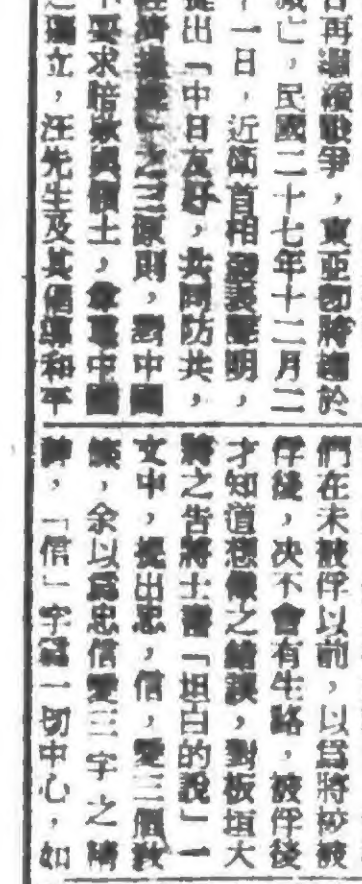 若再繼續戰爭，東亞卽將趨於
滅亡」，民國二十七年十二月二
十一日，近衛首相發表聲明，
提出「中日友好，共同防共，
經濟提攜」之三原則，對中國
不要求賠款與領土，尊重中國
之獨立，汪先生及其倡導和平
們在未被俘以前，以爲將校被
俘後，决不會有生路，被俘後
才知道想像之錯誤，對板垣大
將之告將士書「坦白的說」一
文中，提出忠，信，愛三個敎
條，余以爲忠信愛三字之精
神，「信」字爲一切中心，如